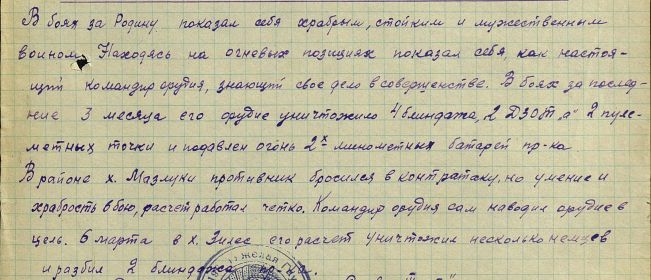 В боях за Родину показал себя храбрым, стойким и мужественным
воином. Находясь на огневых позициях показал себя, как настоя-
щий командир орудия, знающий свое дело в совершенстве. В боях за послед-
ние 3 месяца его орудие уничтожило 4 блиндажа, 2 ДЗОТ"а" 2 пуле-
метных точки и подавлен огонь 2х минометных батарей пр-ка.
В районе х. Мазлуки противник бросился в контратаку, но умение и
храбрость в бою, расчет работал четко. Командир орудия сам наводил орудие в
цель. 6 марта в х. его расчет уничтожил несколько немцев
и разбил 2 блиндажа пр-ка.